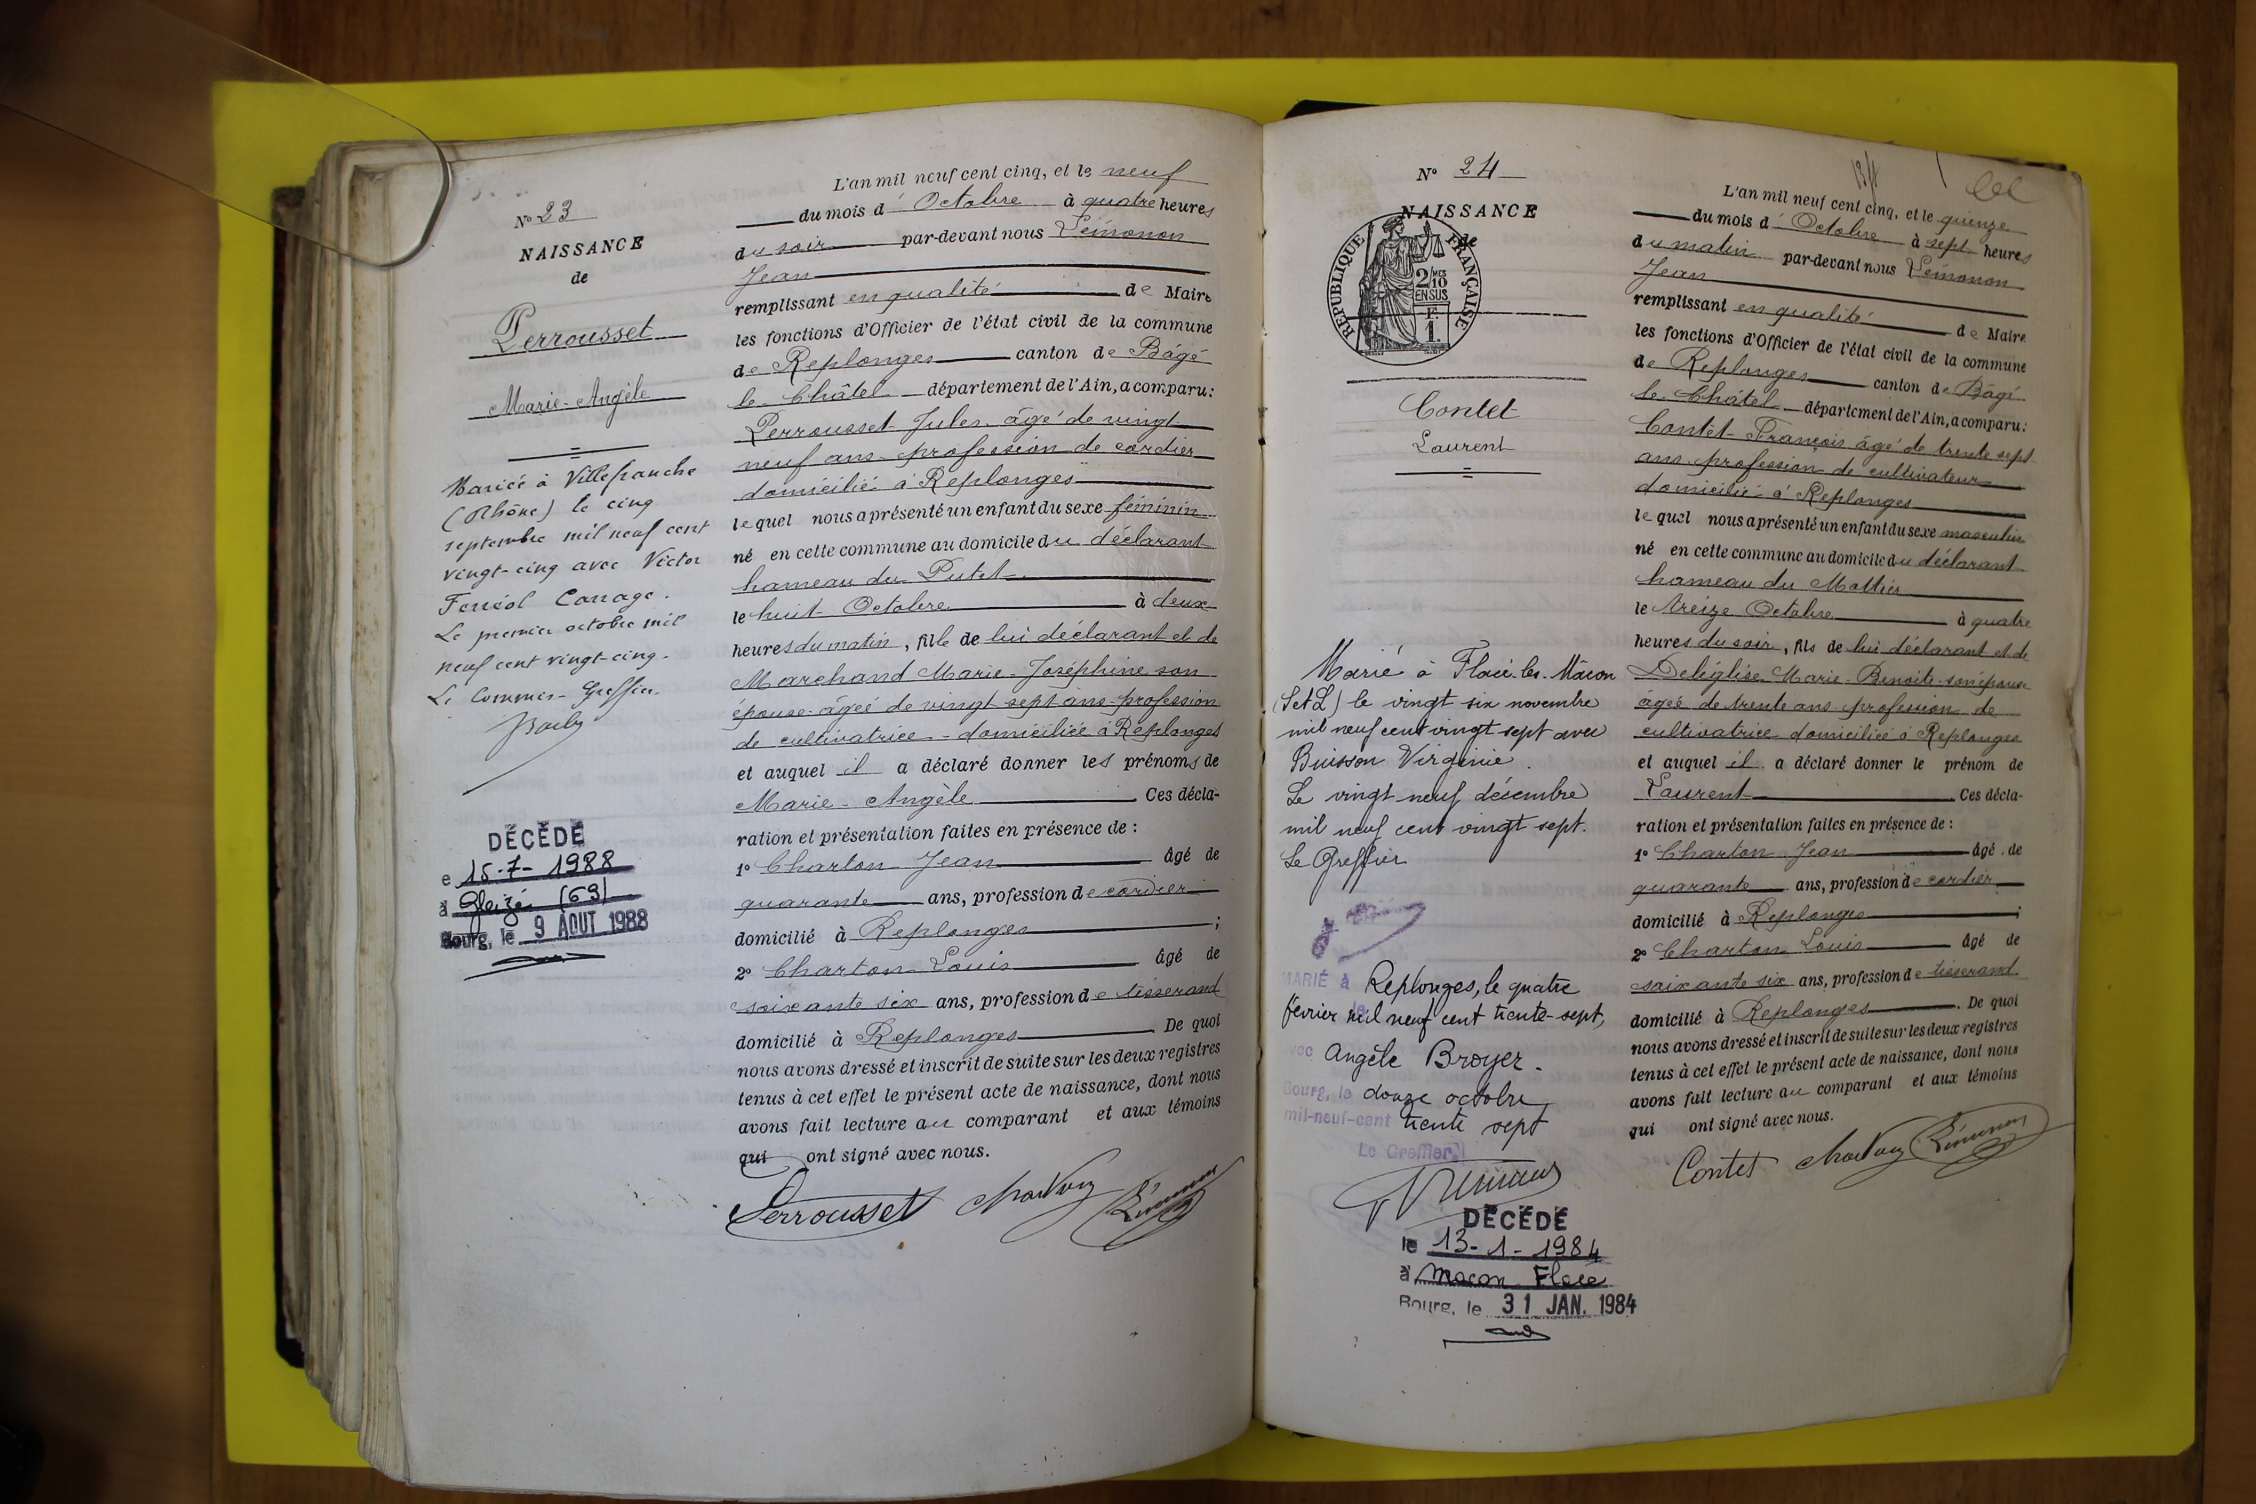 N° 23
NAISSANCE
de
Perrousset
Marie-Angèle
Mariée à Villefranche
(Rhône) le cinq
septembre mil neuf cent
vingt-cinq avec Victor
Ferréol Carrage.
Le premier octobre mil
neuf cent vingt-cinq.
Le Commis-Greffier
DÉCÉDÉ
e 15-7-1988
à Gleizé (69)
Bourg, le 9 AOUT 1988
L'an mil neuf cent cinq, et le neuf
du mois d' Octobre à quatre heures
du soir par-devant nous Lémonon
Jean
remplissant en qualité de Maire
les fonctions d'Officier de l'état civil de la commune
de Replonges canton de Bâgé
le Châtel département de l'Ain, a comparu:
Perrousset Jules âgé de vingt
neuf ans profession de cordier
domicilié à Replonges
lequel nous a présenté un enfant du sexe féminin
né en cette commune au domicile du déclarant
hameau du Putet
le huit Octobre à deux
heures du matin, fille de lui déclarant et de
Marchand Marie-Joséphine son
épouse âgée de vingt sept ans profession
de cultivatrice - domiciliée à Replonges
et auquel il a déclaré donner les prénoms de
Marie-Angèle Ces décla-
ration et présentation faites en présence de :
1° Charton Jean âgé de
quarante ans, profession de cordier
domicilié à Replonges ;
2° Charton Louis âgé de
soixante six ans, profession de tisserand
domicilié à Replonges. De quoi
nous avons dressé et inscrit de suite sur les deux registres
tenus à cet effet le présent acte de naissance, dont nous
avons fait lecture au comparant et aux témoins
qui ont signé avec nous.
Perrousset Charton Lémonon
N° 24
NAISSANCE
de
RÉPUBLIQUE FRANÇAISE
2/10
MES
EN SUS
F.
1.
Contet
Laurent
Marié à Flacé-les-Mâcon
(S et L) le vingt six novembre
mil neuf cent vingt sept avec
Buisson Virginie.
Le vingt neuf décembre
mil neuf cent vingt sept.
Le Greffier
MARIÉ à Replonges, le quatre
le
février mil neuf cent trente-sept,
avec Angèle Broyer.
Bourg, le douze octobre
mil-neuf-cent trente sept
Le Greffier
DÉCÉDÉ
le 13-1-1984
à Macon Flacé
Bourg, le 31 JAN. 1984
L'an mil neuf cent cinq, et le quinze
du mois d' Octobre à sept heures
du matin par-devant nous Lémonon
Jean
remplissant en qualité de Maire
les fonctions d'Officier de l'état civil de la commune
de Replonges canton de Bâgé
le Châtel département de l'Ain, a comparu:
Contet François âgé de trente sept
ans profession de cultivateur
domicilié à Replonges
lequel nous a présenté un enfant du sexe masculin
né en cette commune au domicile du déclarant
hameau du Mottier
le treize Octobre à quatre
heures du soir, fils de lui déclarant et de
Deléglise Marie-Benoite son épouse
âgée de trente ans profession de
cultivatrice domiciliée à Replonges
et auquel il a déclaré donner le prénom de
Laurent. Ces décla-
ration et présentation faites en présence de :
1° Charton Jean âgé de
quarante ans, profession de cordier
domicilié à Replonges ;
2° Charton Louis âgé de
soixante six ans, profession de tisserand
domicilié à Replonges. De quoi
nous avons dressé et inscrit de suite sur les deux registres
tenus à cet effet le présent acte de naissance, dont nous
avons fait lecture au comparant et aux témoins
qui ont signé avec nous.
Contet Charton Lémonon